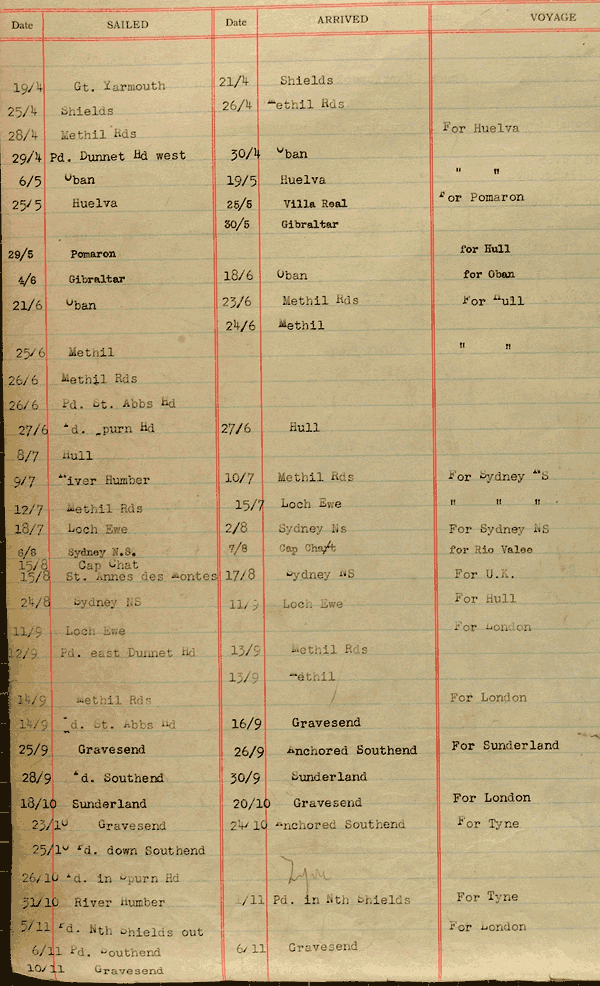 Date SAILED Date ARRIVED VOYAGE
19/4 Gt. Yarmouth 21/4 Shields
25/4 Shields 26/4 Methil Rds
28/4 Methil Rds For Huelva
29/4 Pd. Dunnet Hd west 30/4 Oban
6/5 Oban 19/5 Huelva " "
25/5 Huelva 25/5 Villa Real For Pomaron
30/5 Gibraltar
29/5 Pomaron for Hull
4/6 Gibraltar 18/6 Oban for Oban
21/6 Oban 23/6 Methil Rds For Hull
24/6 Methil
25/6 Methil " "
26/6 Methil Rds
26/6 Pd. St. Abbs Hd
27/6 Pd. Spurn Hd 27/6 Hull
8/7 Hull
9/7 River Humber 10/7 Methil Rds For Sydney NS
12/7 Methil Rds 15/7 Loch Ewe " " "
18/7 Loch Ewe 2/8 Sydney Ns For Sydney NS
6/8 Sydney N.S. 7/8 Cap Chat for Rio Valee
15/8 Cap Chat
15/8 St. Annes des Montes 17/8 Sydney NS For U.K.
24/8 Sydney NS 11/9 Loch Ewe For Hull
11/9 Loch Ewe For London
12/9 Pd. east Dunnet Hd 13/9 Methil Rds
13/9 Methil
14/9 Methil Rds For London
14/9 Pd. St. Abbs Hd 16/9 Gravesend
25/9 Gravesend 26/9 Anchored Southend For Sunderland
28/9 Pd. Southend 30/9 Sunderland
18/10 Sunderland 20/10 Gravesend For London
23/10 Gravesend 24/10 Anchored Southend For Tyne
25/10 Pd. down Southend
26/10 Pd. in Spurn Hd Tyne
31/10 River Humber 1/11 Pd. in Nth Shields For Tyne
5/11 Pd. Nth Shields out For London
6/11 Pd. Southend 6/11 Gravesend
10/11 Gravesend